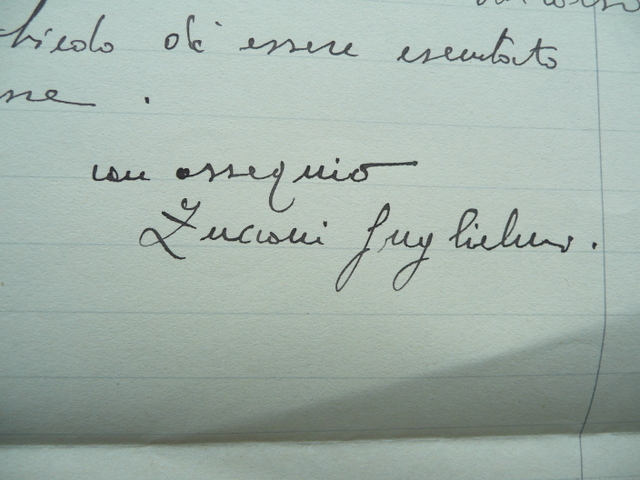 hiedo di essere esentato
sse .
con ossequio
Luciani Guglielmo.